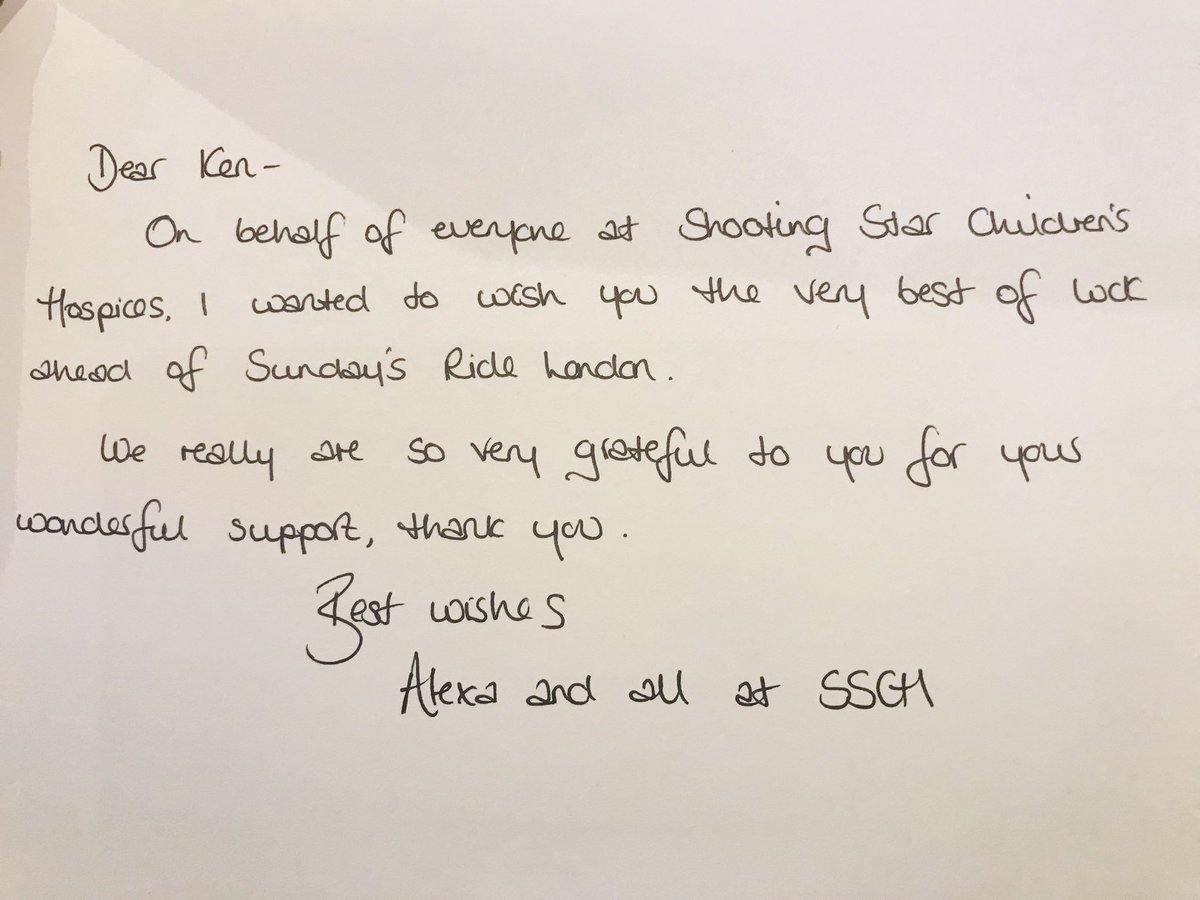 Dear Ken-
On behalf of everyone at Shooting Star Children's
Hospices, I wanted to wish you the very best of luck
ahead of Sunday's Ride London.
We really are so very grateful to you for your
wonderful support, thank you.
Best wishes
Alexa and all at SSCH